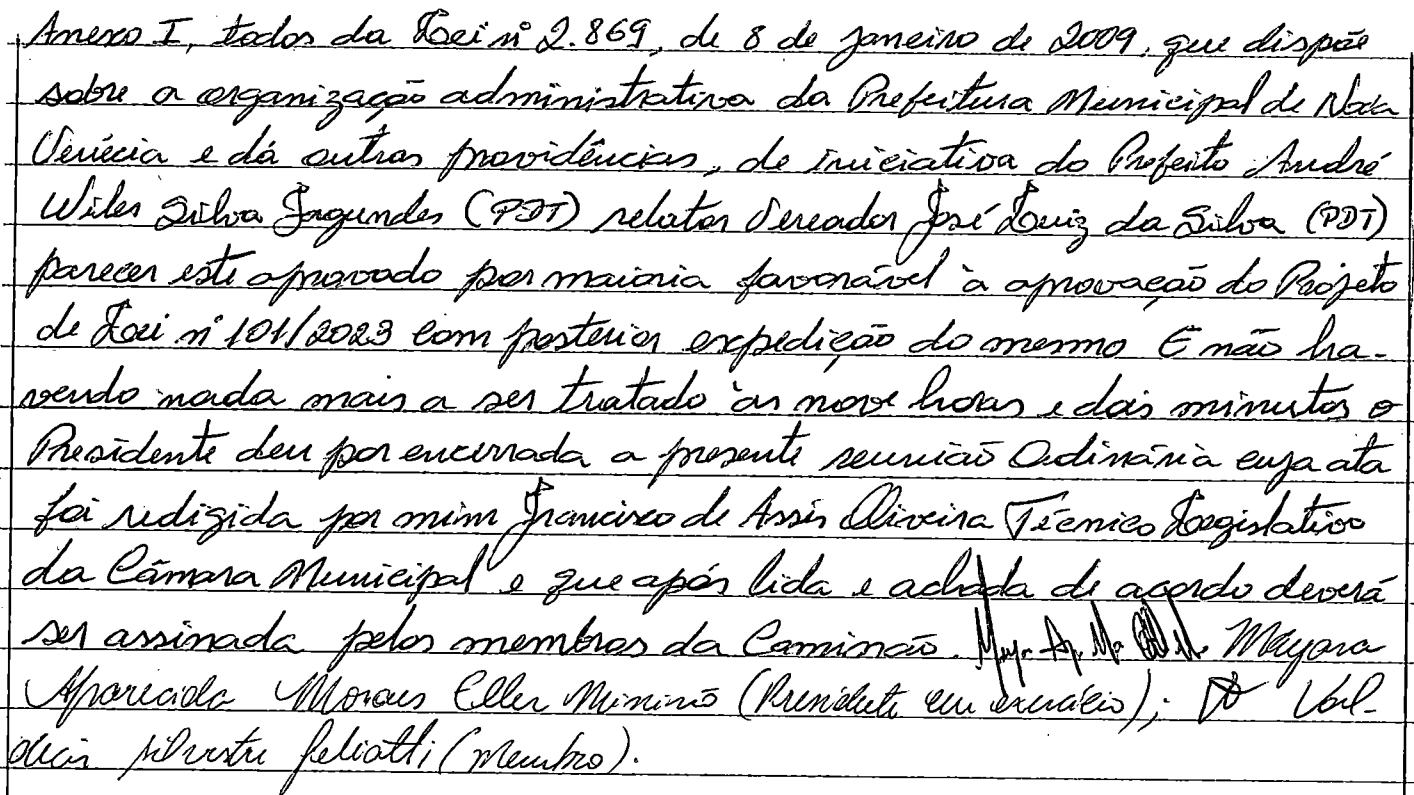 Anexo I, todos da Lei nº 2.869, de 8 de janeiro de 2009, que dispõe
sobre a organização administrativa da Prefeitura Municipal de Nova
Venécia e dá outras providências, de iniciativa do Prefeito André
Wiler Silva Fagundes (PDT) relator Vereador José Luiz da Silva (PDT)
parecer este aprovado por maioria favorável à aprovação do Projeto
de Lei nº 101/2023 com posterior expedição do mesmo E não ha-
vendo nada mais a ser tratado às nove horas e dois minutos o
Presidente deu por encerrada a presente reunião Ordinária cuja ata
foi redigida por mim Francisco de Assis Oliveira Técnico Legislativo
da Câmara Municipal e que após lida e achada de acordo deverá
ser assinada pelos membros da Comissão. Mayara
Aparecida Moraes Eller Minino (Presidente em exercício); Val-
decir Silvestre Juliatti (Membro).